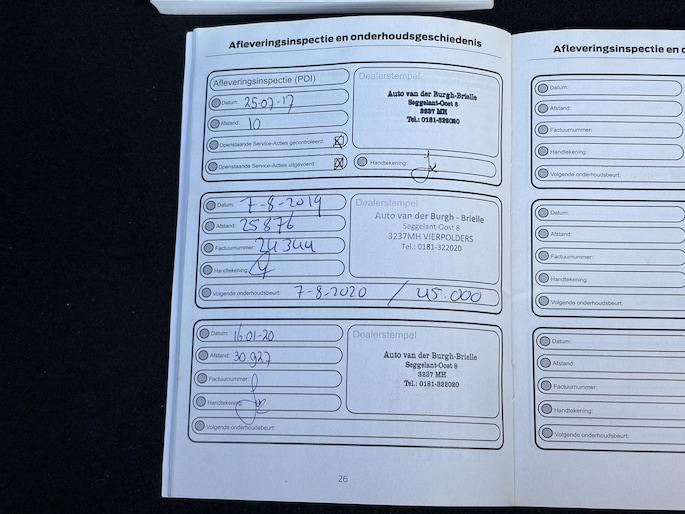 Afleveringsinspectie en onderhoudsgeschiedenis
Afleveringsinspectie (PDI)
Datum: 25-07-17
Afstand: 10
Openstaande Service-Acties gecontroleerd:
Openstaande Service-Acties uitgevoerd:
Dealerstempel
Auto van der Burgh-Brielle
Seggelant-Oost 8
3237 MH
Tel.: 0181-322020
Handtekening:
Datum: 7-8-2019
Afstand: 25876
Factuurnummer: 24344
Handtekening:
Dealerstempel
Auto van der Burgh - Brielle
Seggelant-Oost 8
3237MH VIERPOLDERS
Tel.: 0181-322020
Volgende onderhoudsbeurt: 7-8-2020 / 45.000
Datum: 16-01-20
Afstand: 30.927
Factuurnummer:
Handtekening:
Dealerstempel
Auto van der Burgh-Brielle
Seggelant-Oost 8
3237 MH
Tel.: 0181-322020
Volgende onderhoudsbeurt:
26
Afleveringsinspectie en
Datum:
Afstand:
Factuurnummer:
Handtekening:
Volgende onderhoudsbeurt:
Datum:
Afstand:
Factuurnummer:
Handtekening:
Volgende onderhoudsbeurt:
Datum:
Afstand:
Factuurnummer:
Handtekening:
Volgende onderhoudsbeurt: